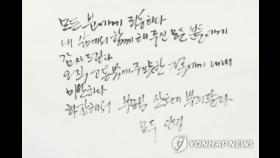 모든 분에게 죄송하다
내 삶에서 함께 해주신 모든 분에게
감사드린다
오직 고통밖에 주지못한 가족에게 내내
미안하다
화장해서 부모님 산소에 뿌려달라
모두 안녕
YONHAP NEWS